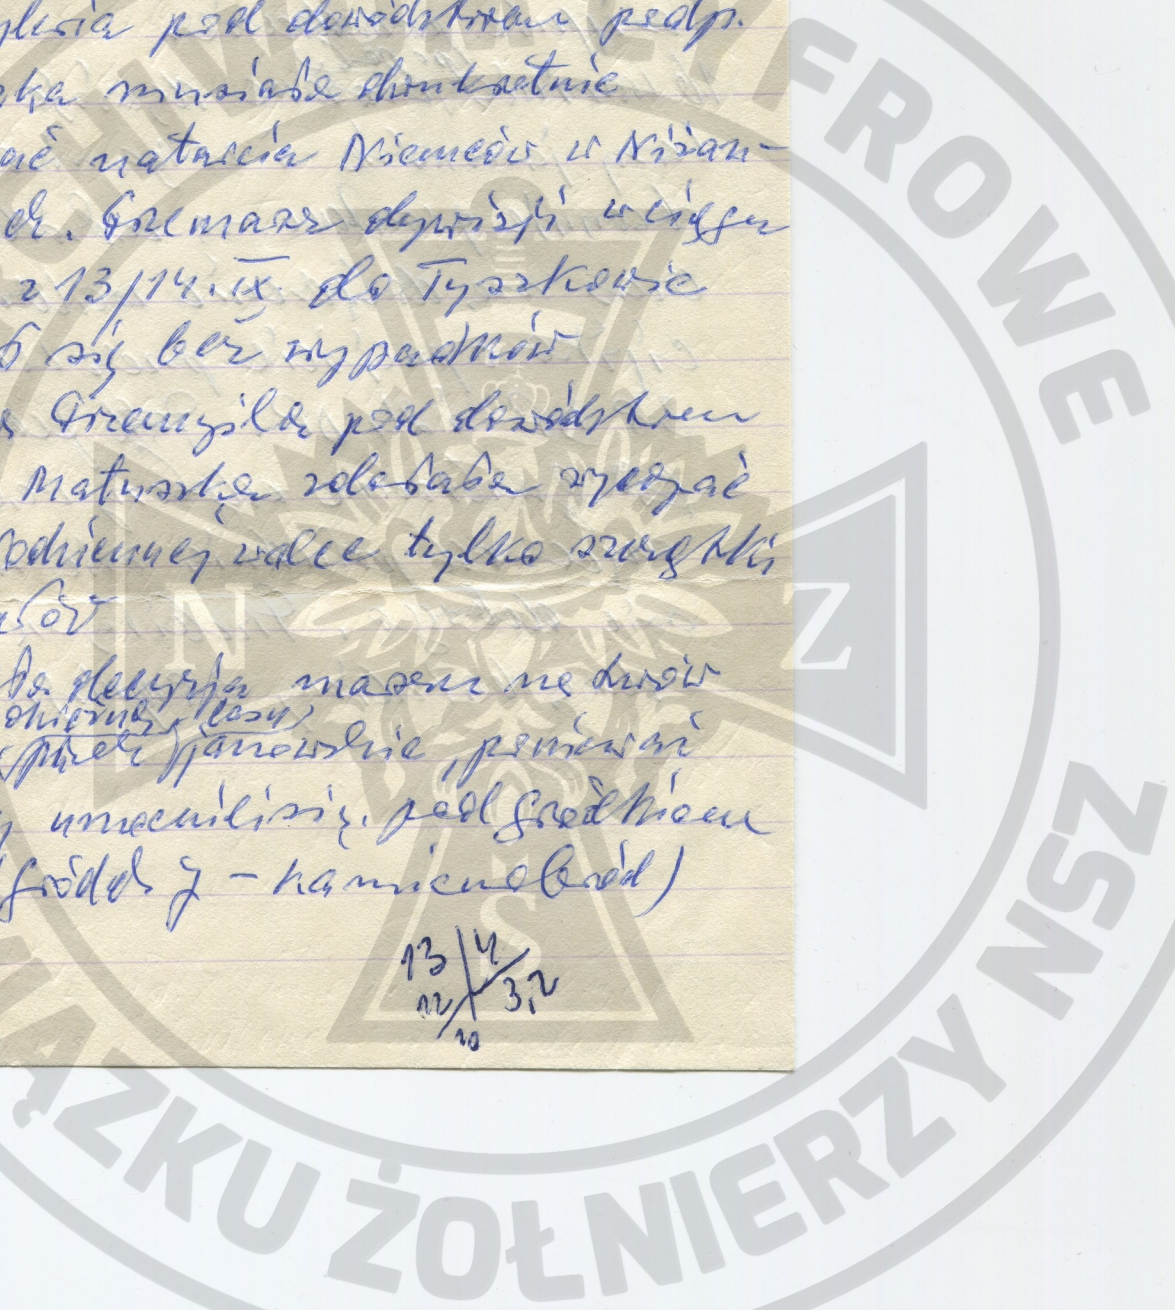 pod dowództwem podp.
musiała dwukrotnie
natarcia Niemców w Niżan-
ch. Przemarsz dywizji w ciągu
z 13/14.IX. do Tyszkowic
ł się bez wypadków
Przemyśla pod dowództwem
Matuszka zdołała wyrwać
odniennej walce tylko szczątki
łów
Ta decyzja marszu na Lwów
śnieżną, lasy,
janowskie, ponieważ
umocnili się pod Gródkiem
Gródek J - Kamienobród)
13 | 4
12 3,2
10
CHIWUM CYFROWE
ZWIĄZKU ŻOŁNIERZY NSZ
N
Z
S